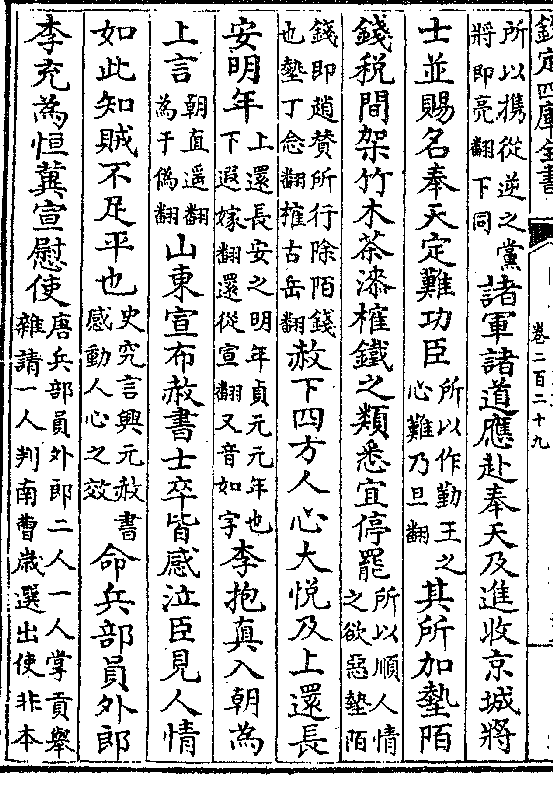 欽定四庫全書
卷二百二十九
所以携從逆之黨
將即亮翻下同
諸軍諸道應赴奉天及進收京城將
士並賜名奉天定難功臣
所以作勤王之
心難乃旦翻
其所加墊陌
錢税間架竹木茶漆榷鐵之類悉宜停罷
所以順人情
之欲惡墊陌
錢即趙贊所行除陌錢
也墊丁念翻榷古岳翻
赦下四方人心大悦及上還長
安明年
上還長安之明年貞元元年也
下遐嫁翻還從宣翻又音如字
李抱真入朝為
上言
朝直遥翻
為于偽翻
山東宣布赦書士卒皆感泣臣見人情
如此知賊不足平也
史究言興元赦書
感動人心之效
命兵部員外郎
李充為恒冀宣慰使
唐兵部員外郎二人一人掌貢舉
雜請一人判南曹歲選出使非本